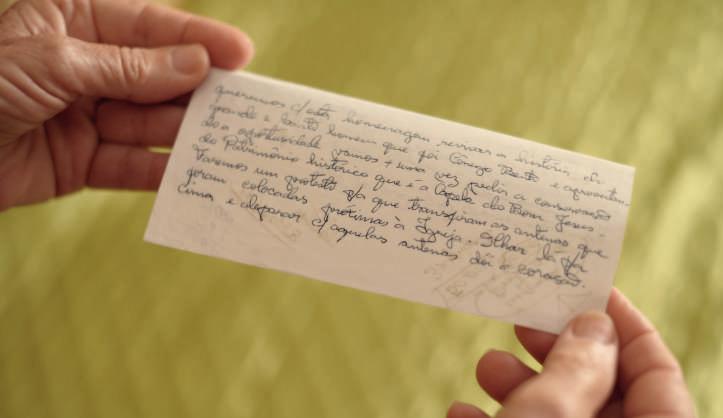 queremos c/ esta homenagem reviver a história do
grande e santo homem que foi Cônego Bento e aproveitan-
do a oportunidade vamos + uma vez pedir a conservação
do Patrimônio histórico que é a Capela do Bom Jesus -
Faremos um protesto p/a que transfiram as antenas que
foram colocadas próximas à Igreja. Olhar lá p/
cima e deparar c/ aquelas antenas dói o coração.